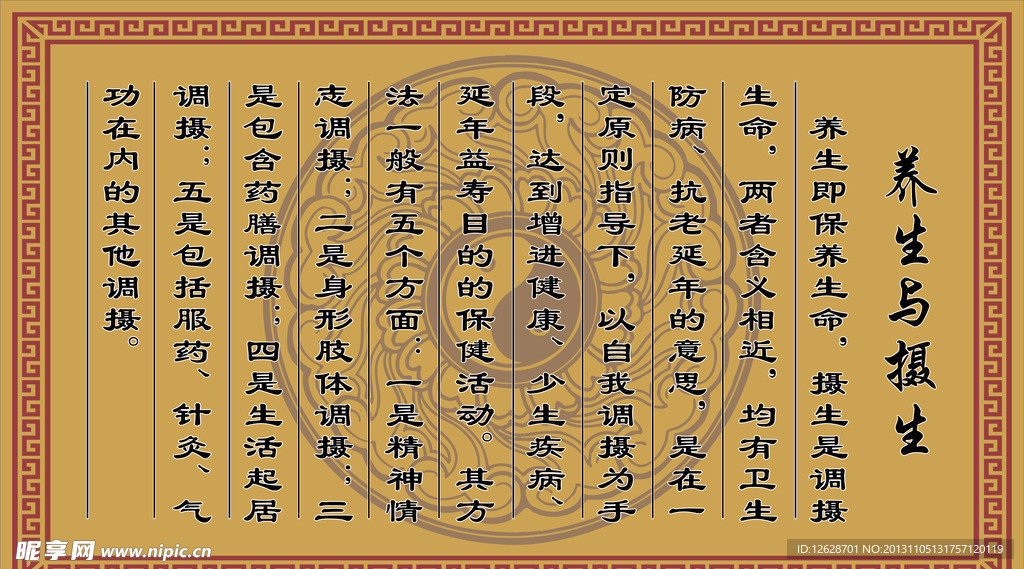 养生与摄生
养生即保养生命，摄生是调摄
生命，两者含义相近，均有卫生
防病、抗老延年的意思，是在一
定原则指导下，以自我调摄为手
段，达到增进健康、少生疾病、
延年益寿目的的保健活动。其方
法一般有五个方面：一是精神情
志调摄；二是身形肢体调摄；三
是包含药膳调摄；四是生活起居
调摄；五是包括服药、针灸、气
功在内的其他调摄。
昵享网 www.nipic.cn
ID:12628701 NO:20131105131757120119